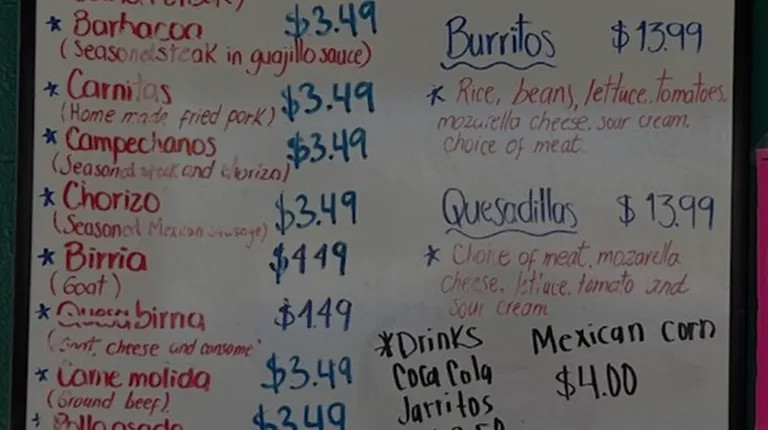 * Barbacoa $3.49
(Seasoned steak in guajillo sauce)
* Carnitas $3.49
(Home made fried pork)
* Campechanos $3.49
(Seasoned steak and chorizo)
* Chorizo $3.49
(Seasoned Mexican sausage)
* Birria $4.49
(Goat)
* birria $4.49
cheese and consome
* Carne molida $3.49
(Ground beef)
* Pollo asado $3.49
Burritos $13.99
* Rice, beans, lettuce, tomatoes,
mozarella cheese, sour cream,
choice of meat.
Quesadillas $13.99
* Choice of meat, mozarella
cheese, lettuce, tomato and
sour cream
*Drinks
Coca Cola
Jarritos
Mexican corn
$4.00